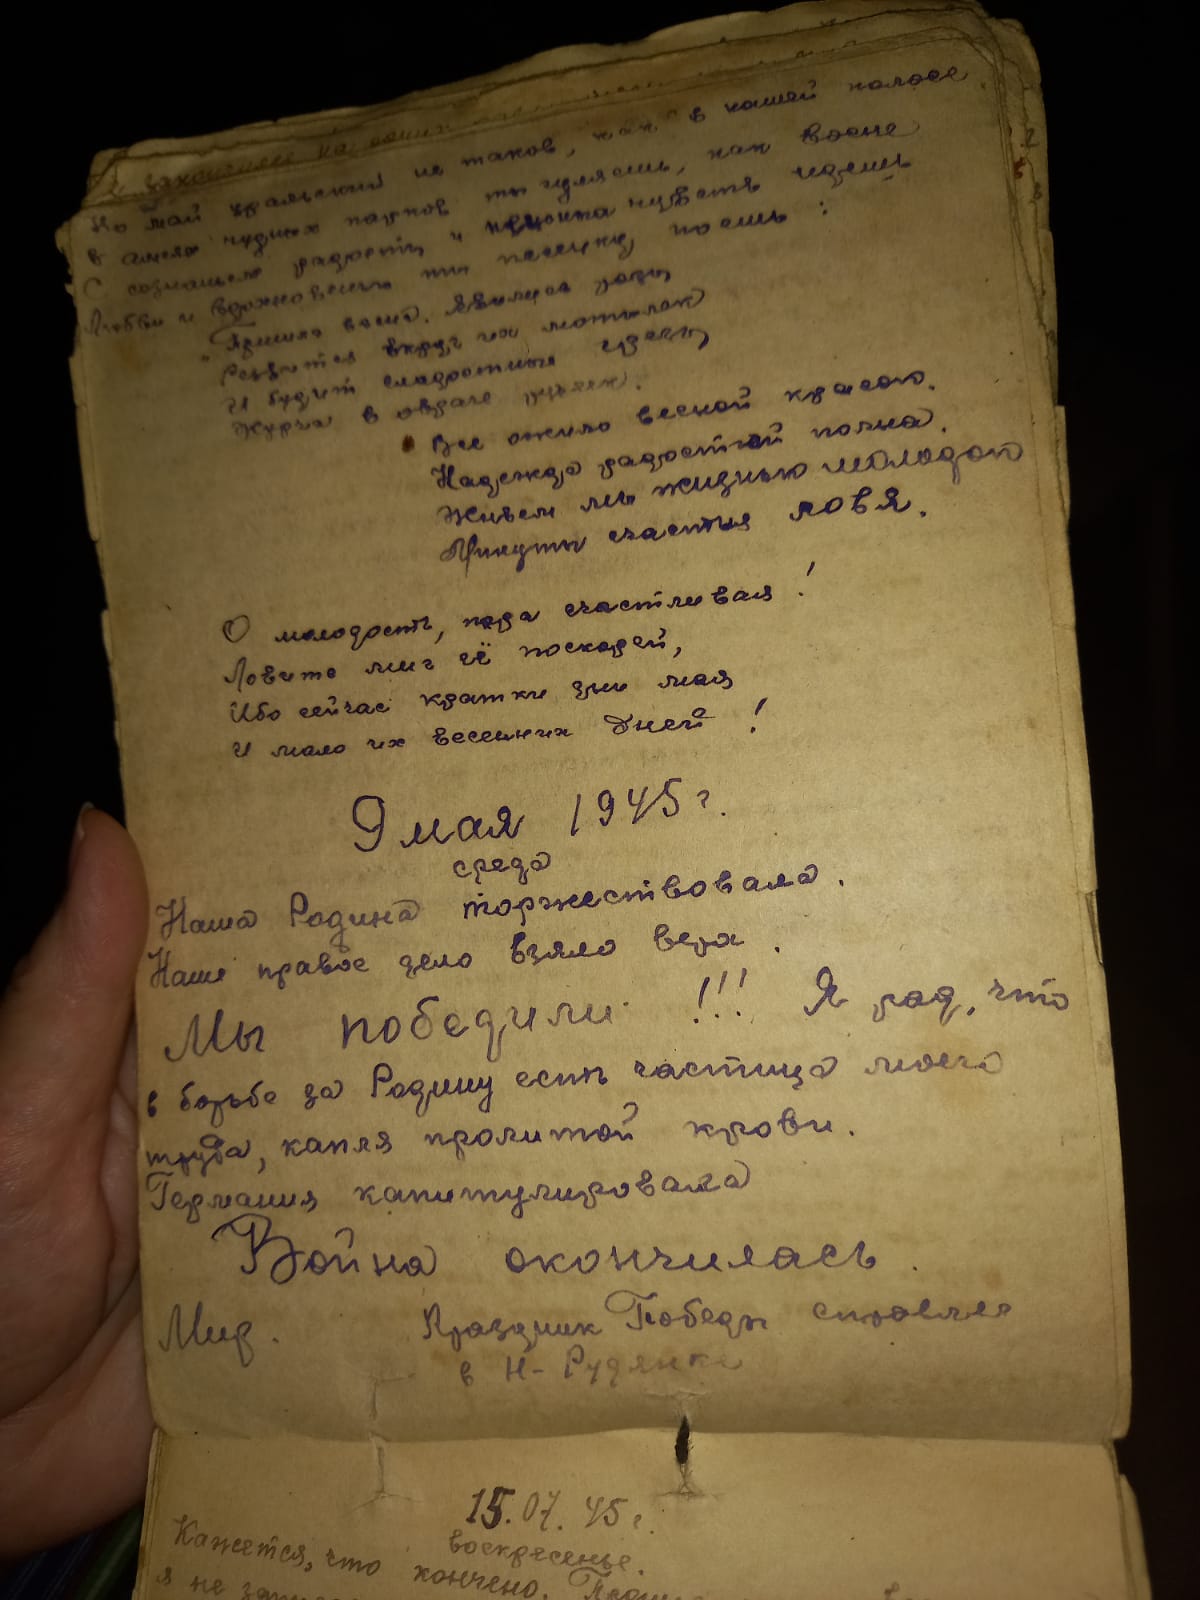 Но май уральский не таков, как в нашей полосе
в аллеях чудных парков ты гуляешь, как во сне
С сознаньем радости и чувств идешь
Любви и вдохновенья ты песенку поешь:
"Пришла весна. Явились розы
Резвится вкруг их мотылек
И будит сладостные грезы
Журча в овраге ручеек.
Все ожило весной красою.
Надежда радостней полна.
Живем мы жизнью молодою
Минуты счастья ловя.
О молодость, пора счастливая!
Ловите миг её поскорей,
Ибо сейчас кратки дни мая
И мало их весенних дней!
9 мая 1945 г.
среда
Наша Родина торжествовала.
Наше правое дело взяло верх.
Мы победили!!! Я рад, что
в борьбе за Родину есть частица моего
труда, капля пролитой крови.
Германия капитулировала
Война окончилась.
Мир. Праздник Победы справлял
в Н-Рудянке
15.07.45 г.
воскресенье.
Кажется, что кончено.
я не